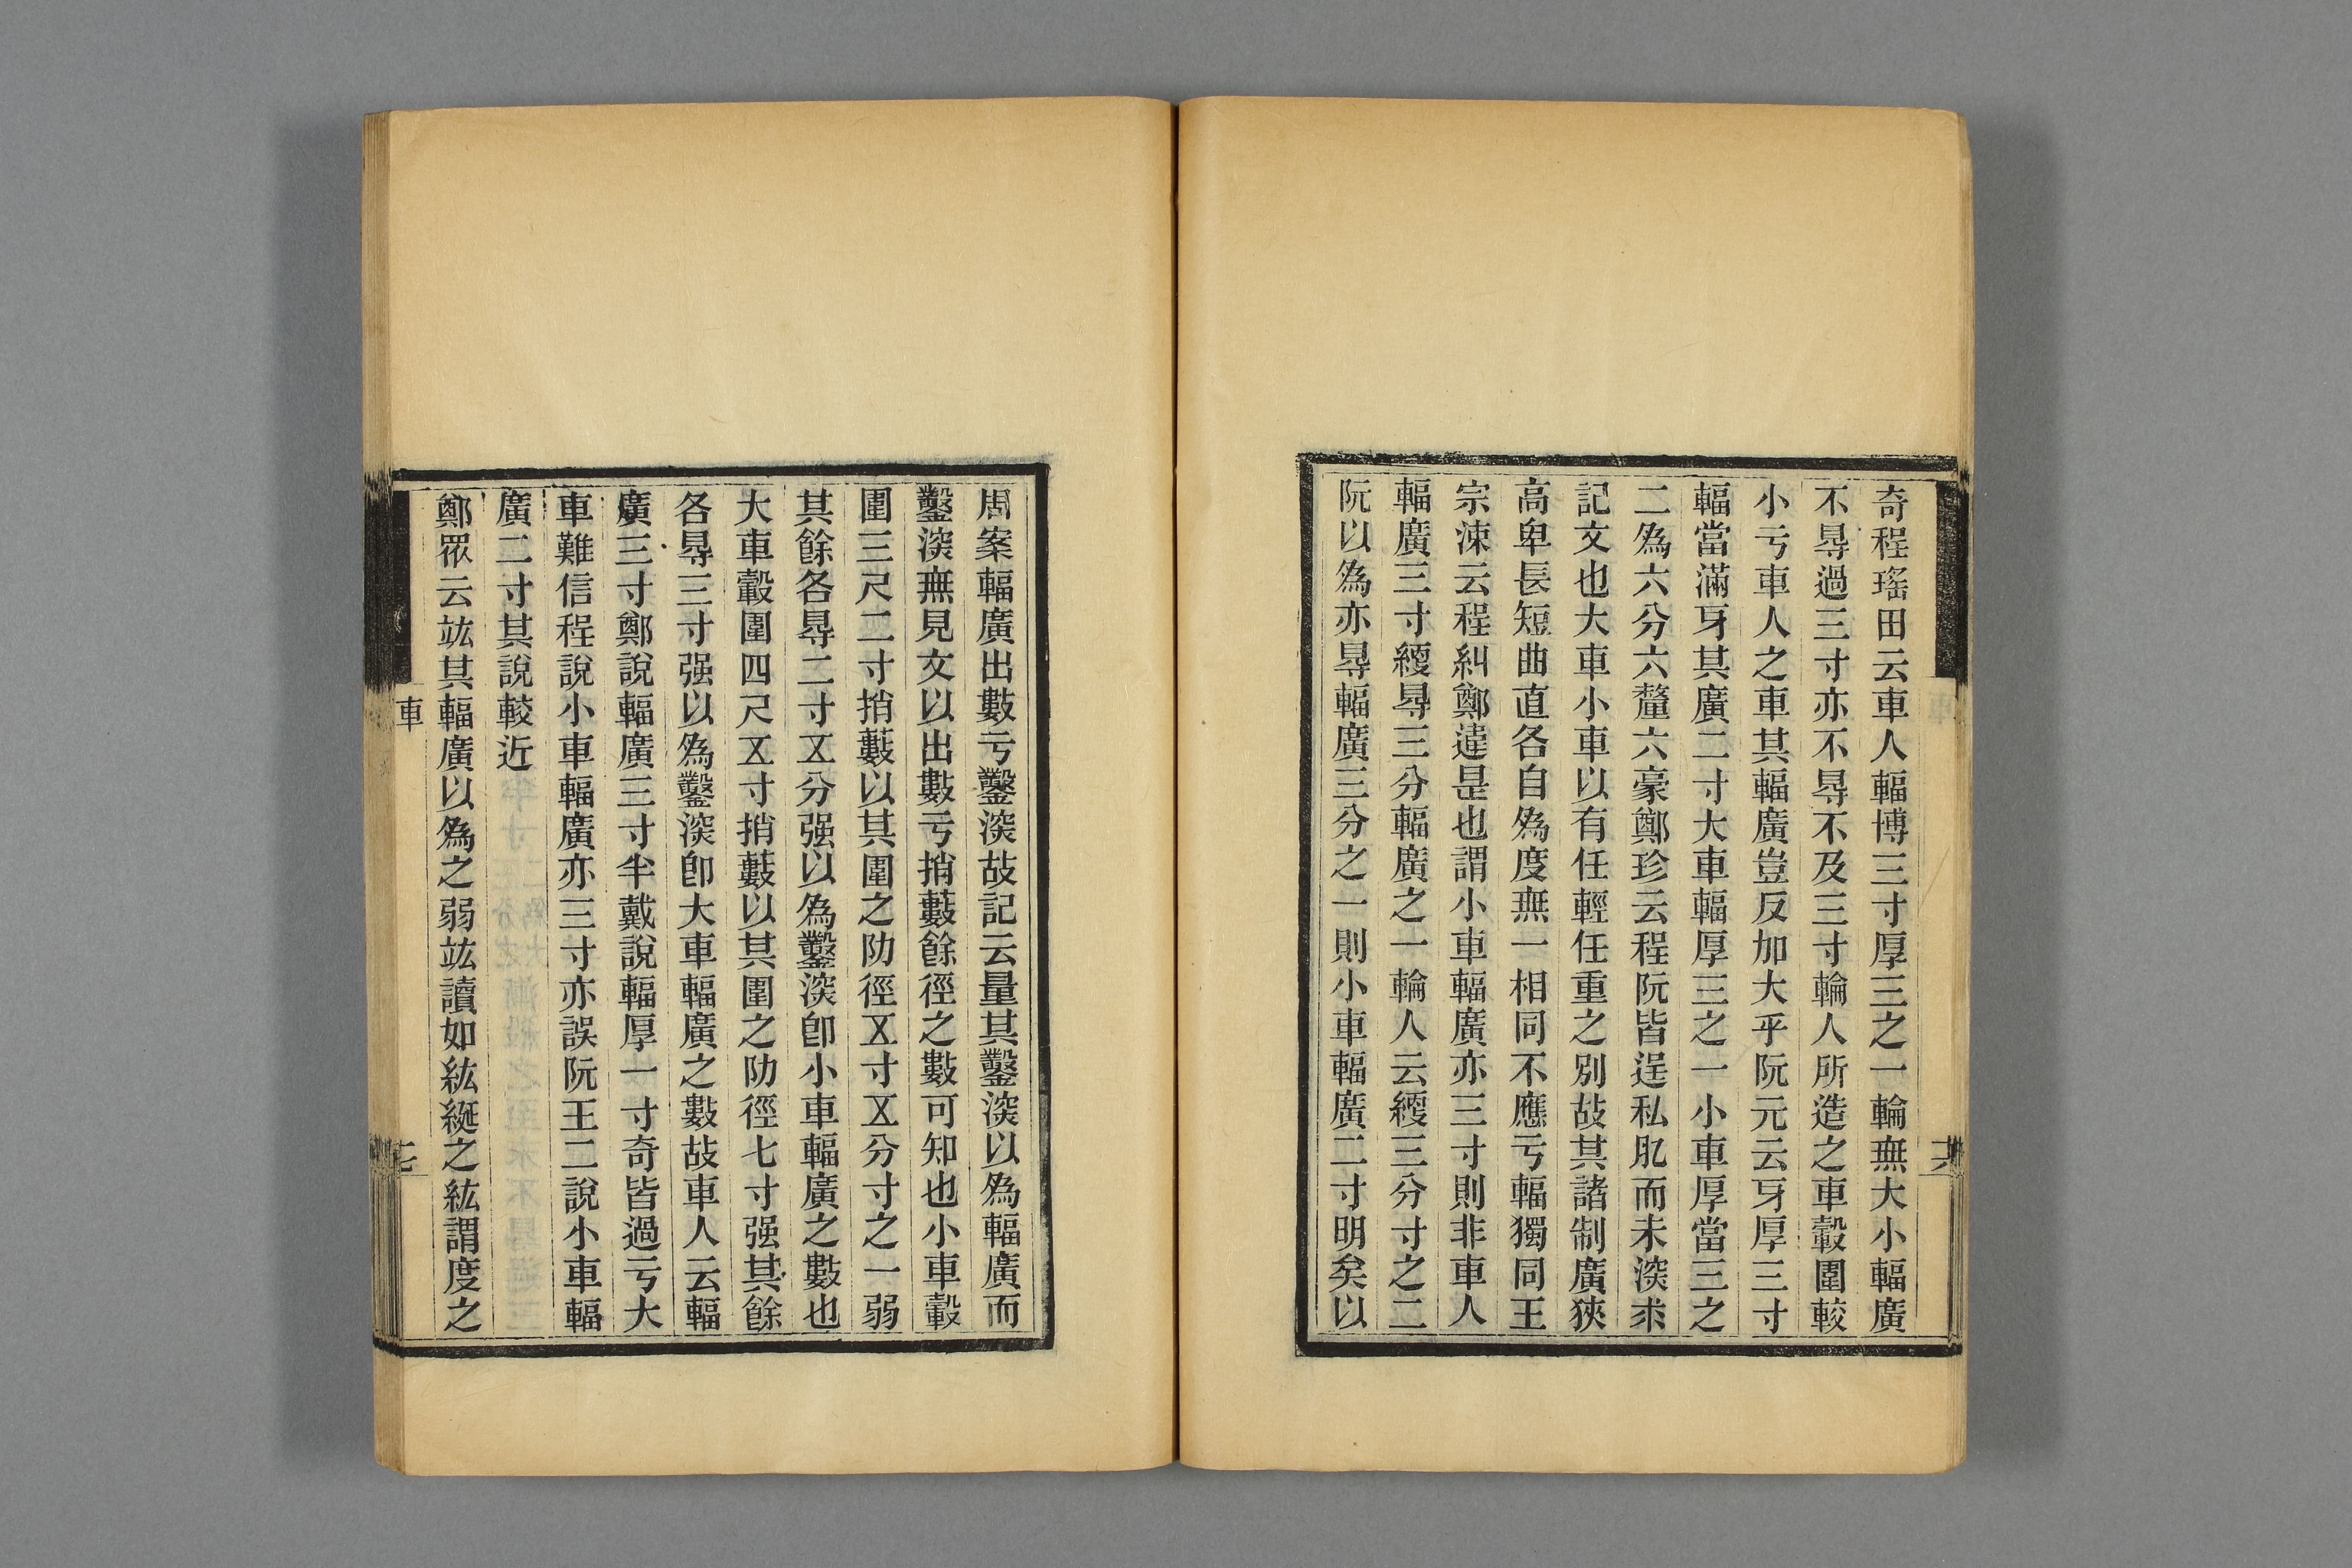 奇程瑤田云車人輻博三寸厚三之一輪無大小輻廣
不㝵過三寸亦不㝵不及三寸輪人所造之車轂圍較
小亏車人之車其輻廣豈反加大乎阮元云牙厚三寸
輻當滿牙其廣二寸大車輻厚三之一小車厚當三之
二爲六分六釐六豪鄭珍云程阮皆逞私肊而未湥求
記文也大車小車以有任輕任重之別故其諸制廣狹
高卑長短曲直各自爲度無一相同不應亏輻獨同王
宗涑云程糾鄭違是也謂小車輻廣亦三寸則非車人
輻廣三寸綆㝵三分輻廣之一輪人云綆三分寸之二
阮以爲亦㝵輻廣三分之一則小車輻廣二寸明矣以
周案輻廣出數亏鑿湥故記云量其鑿湥以爲輻廣而
鑿湥無見文以出數亏捎藪餘徑之數可知也小車轂
圍三尺二寸捎藪以其圍之阞徑㐅寸㐅分寸之一弱
其餘各㝵二寸㐅分强以爲鑿湥卽小車輻廣之數也
大車轂圍四尺㐅寸捎藪以其圍之阞徑七寸强其餘
各㝵三寸强以爲鑿湥卽大車輻廣之數故車人云輻
廣三寸鄭說輻廣三寸半戴說輻厚一寸奇皆過亏大
車難信程說小車輻廣亦三寸亦誤阮王二說小車輻
廣二寸其說較近
鄭眾云竑其輻廣以爲之弱竑讀如紘綖之紘謂度之
車
十七
十六